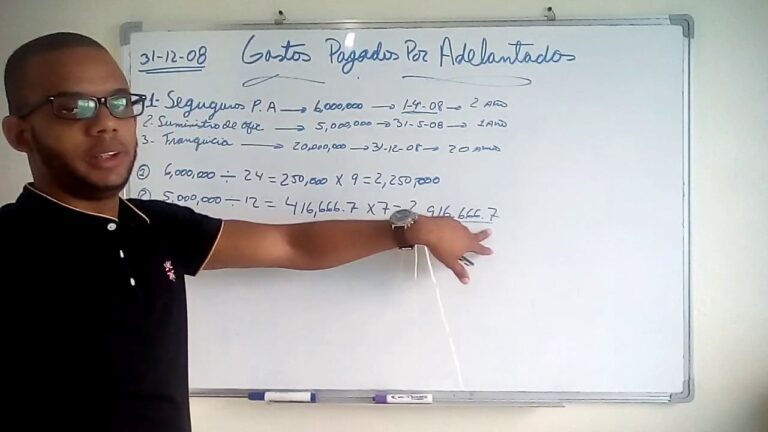 31-12-08 Gastos Pagados Por Adelantados
1- Seguguros P.A → 6,000,000 → 1-4-08 → 2 Año
2- Suministro de ofic → 5,000,000 → 31-5-08 → 1 Año
3- Franquicia → 20,000,000 → 31-12-08 → 20 Años
① 6,000,000 ÷ 24 = 250,000 x 9 = 2,250,000
② 5,000,000 ÷ 12 = 416,666.7 x 7 = 2,916,666.7